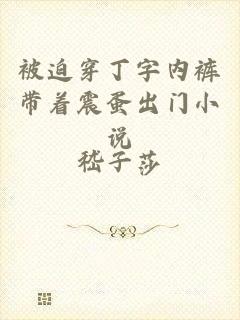 被迫穿丁字内裤
带着震蛋出门小
说
嵇子莎